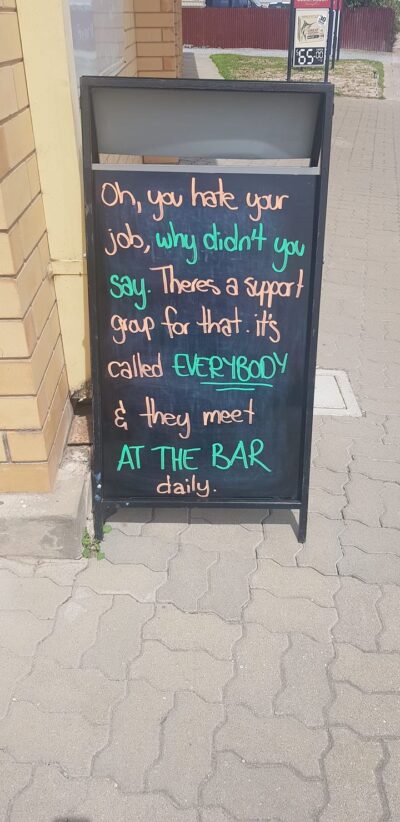 Oh, you hate your
job, why didn't you
say. Theres a support
group for that. it's
called EVERYBODY
& they meet
AT THE BAR
daily.